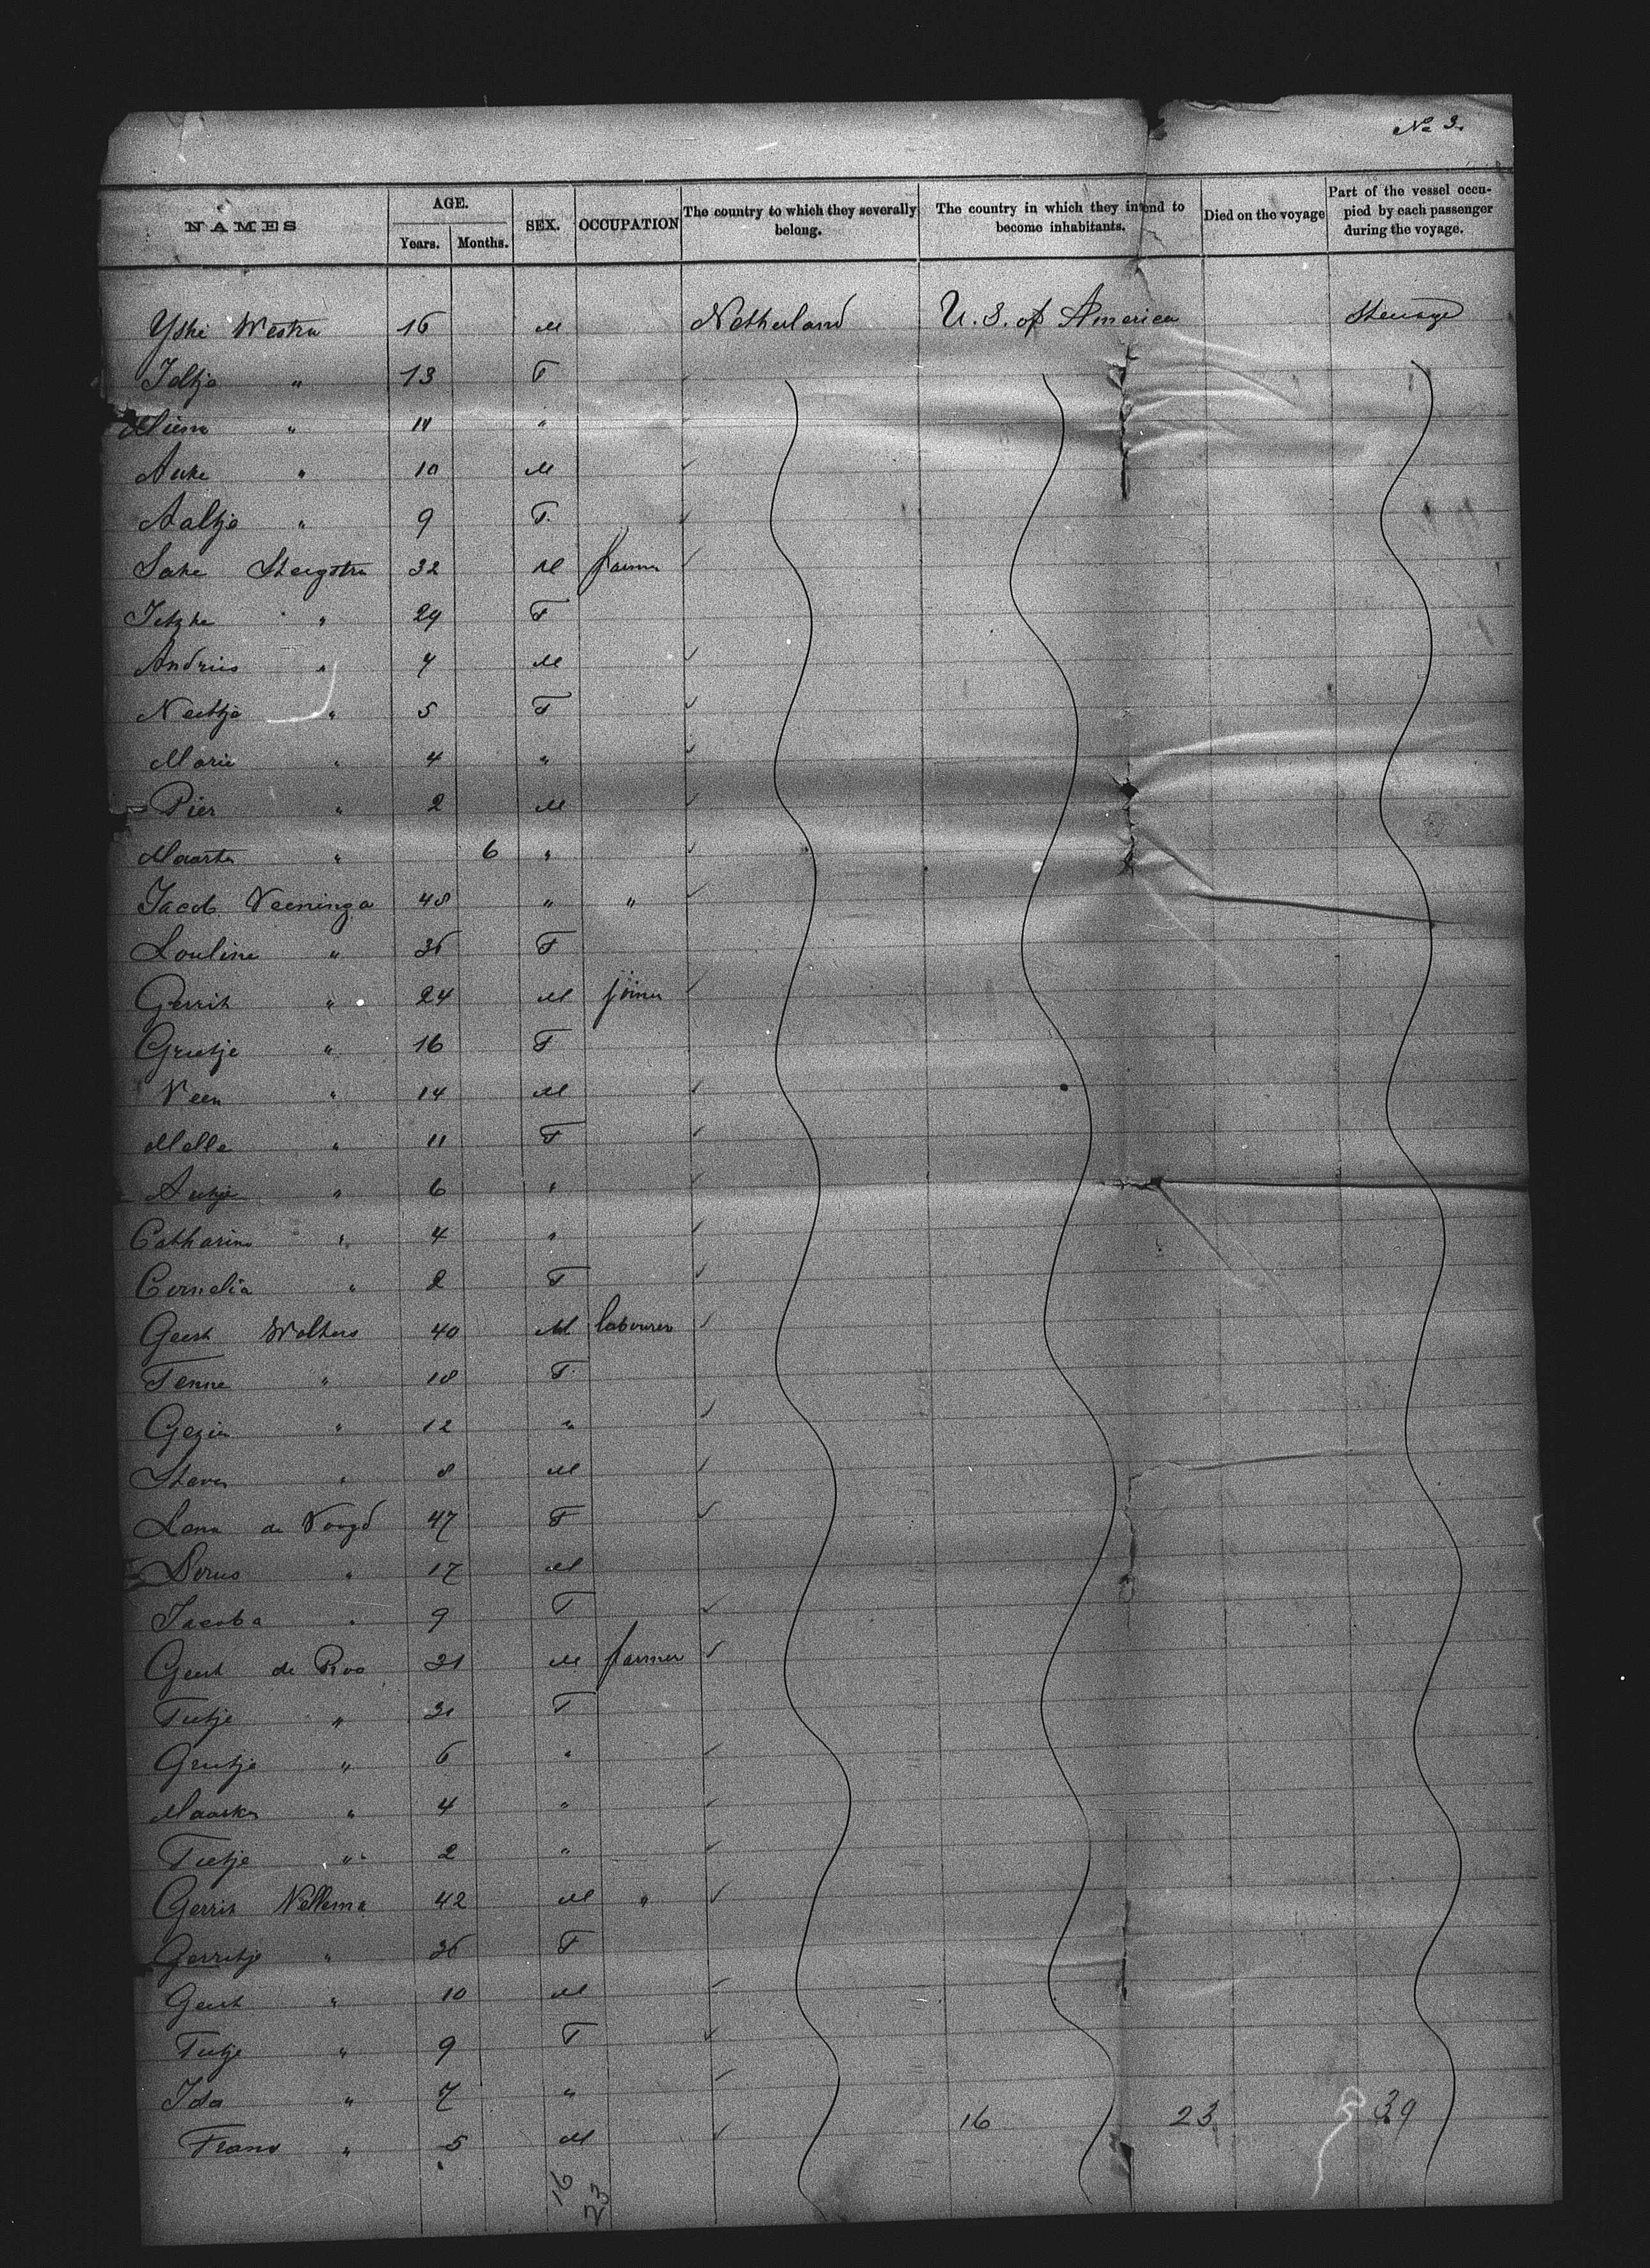 No 3.
NAMES AGE. Years. Months. SEX. OCCUPATION The country to which they severally belong. The country in which they intend to become inhabitants. Died on the voyage Part of the vessel occupied by each passenger during the voyage.
Westra 16 M Netherland U. S. of America Steerage
Jeltje " 13 F
" 11 "
Auke " 10 M
Aaltje " 9 F.
Sake 32 M farmer
Jetske " 29 F
Andries " 7 M
Neeltje " 5 F
Marie " 4 "
Pier " 2 M
Maarten " 6 "
Jacob Veeninga 48 " "
" 36 F
Gerrit " 24 M joiner
Grietje " 16 F
Veen " 14 M
Melle " 11 F
Antje " 6 "
Catharina " 4 "
Cornelia " 2 F
Geert Wolters 40 M labourer
Fenne " 18 F
Gezin " 12 "
Steven " 8 M
Lena de Voogd 47 F
Dorus " 17 M
Jacoba " 9 F
Geert de Roo 31 M farmer
Tietje " 31 F
Grietje " 6 "
" 4 "
Tietje " 2 "
Gerrit Nellema 42 M "
Gerritje " 36 F
Geert " 10 M
Tietje " 9 F
Ida " 7 "
Frans " 5 M
16 23 39
16
23